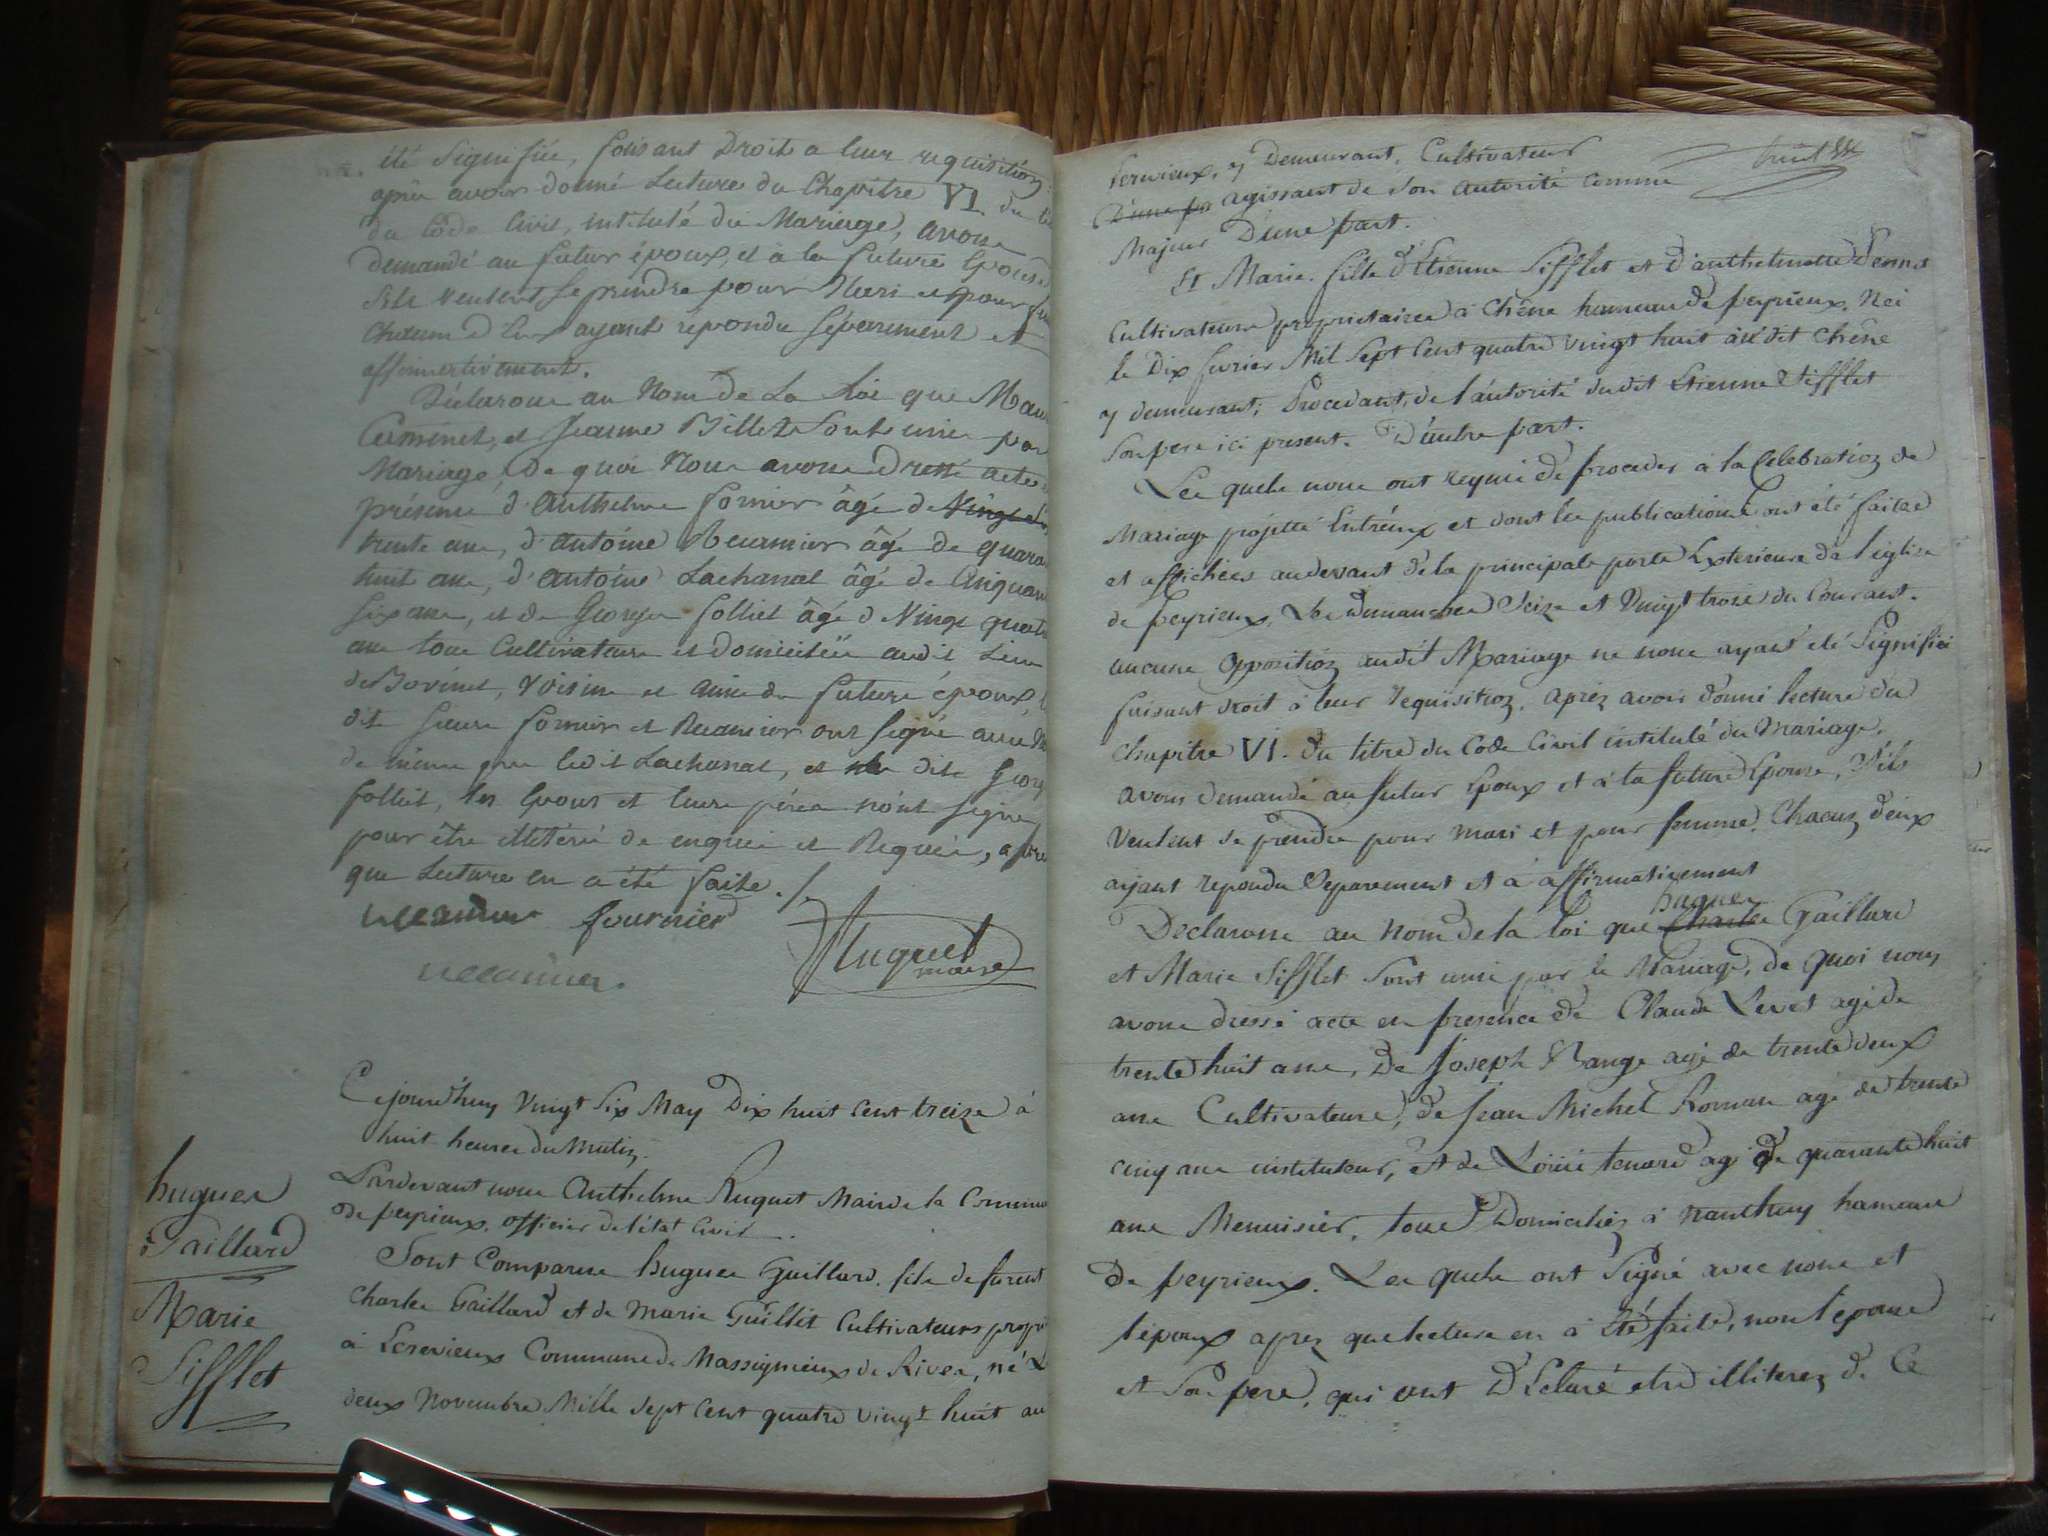 été signifiée, faisant Droit a leur requisition
après avoir donné Lecture du Chapitre VI. du
du Code Civil, intitulé du Mariage, avons
demandé au futur époux, et à la future Epouse
S'ils veulent se prendre pour Mari et pour
chacun d'Eux ayant répondu séparément et
affirmativement.
Déclarons au Nom de La Loi que
Cuminet, et Jeanne Billet sont unis par
Mariage, de quoi Nous avons Dressé acte
présence d'Anthelme fornier âgé de vingt
trente ans, d'antoine Recamier âgé de
huit ans, d'antoine Lachanal âgé de
six ans, et de George folliet âgé de Vingt
ans tous Cultivateurs et Domiciliés audit Lieu
de Bovinel, voisins et amis du futur époux,
dits sieurs fornier et Recamier ont signé avec
de même que ledit Lachanal, et le dit
folliet, les Epoux et leurs pères n'ont signé
pour être illétérés de enquis et Requis, après
que Lecture en a été faite. /.
recamier fournier
Huguet
maire
recamier.
Cejourd'huy vingt six May Dix huit cent treize à
huit heures du Matin.
Pardevant nous Anthelme Huguet Maire de la Commune
de peyrieux, officier de l'état civil.
Sont Comparus hugues Gaillard, fils de furent
Charles Gaillard et de Marie Guillet Cultivateurs
à Lerevieux Commune de Massignieux de Rives, né Le
deux Novembre Mille sept cent quatre vingt huit au
hugues
Gaillard
Marie
Sifflet
huit
y Demeurant, Cultivateur
D'une pa agissant de son autorité comme
Majeur D'une part.
Et Marie fille d'Etienne Sifflet et D'anthelmette
Cultivateurs proprietaires à Chêne hameau de peyrieux, Née
le Dix fevrier Mil Sept Cent quatre vingt huit au dit Chêne
y demeurant, Procedant de l'autorité dudit Etienne Sifflet
Son pere ici present. D'autre part.
Les quels nous ont requis de proceder à la Celebration de
Mariage projetté Entr'eux et dont les publications ont été faites
et affichées audevant de la principale porte Exterieure de l'eglise
de peyrieux, Les Dimanches Seize et Vingt trois du Courant.
aucune opposition audit Mariage ne nous ayant été Signifiée
faisant droit à leur requisition, après avoir donné lecture du
chapitre VI. du titre du Code Civil intitulé du Mariage,
avons demandé au futur Epoux et à la future Epouse, S'ils
veulent se prendre pour mari et pour femme, Chacun d'eux
ayant repondu Separement et à affirmativement
hugues
Declarons au Nom de la Loi que Charles Gaillard
et Marie Sifflet Sont unis par le Mariage, de quoi nous
avons dressé acte en presence de Claude Levet agé de
trente huit ans, De Joseph agé de trente deux
ans Cultivateurs, de Jean Michel Roman agé de trente
cinq ans instituteur, et de Louis tenard agé de quarante huit
ans Menuisier, tous Domiciliés à Nanthuy hameau
De peyrieux. Les quels ont Signé avec nous et
l'epoux apres que lecture en à Eté faite, non l'epouse
et Son pere, qui ont Déclaré etre illiterés de Ce